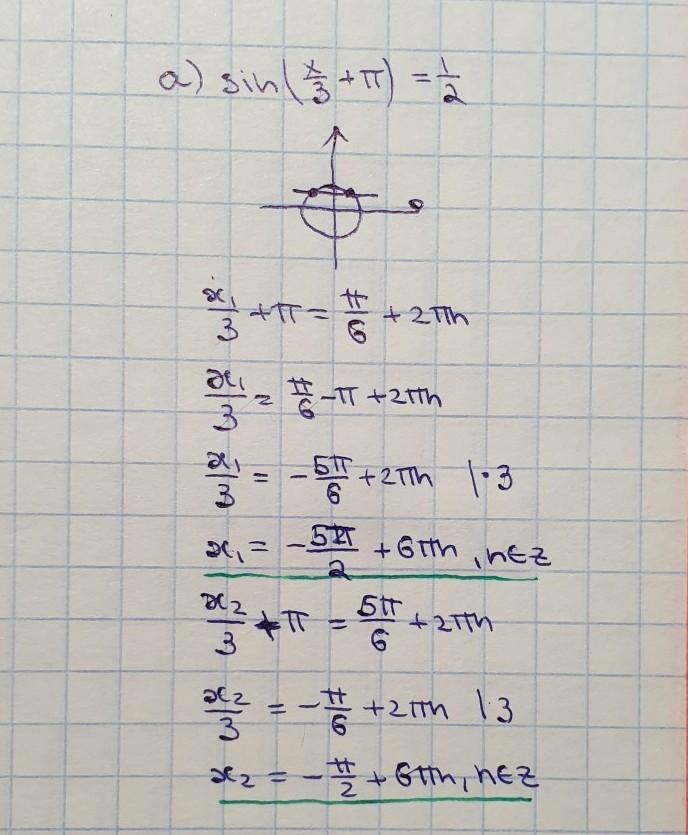 a) sin(x/3 + π) = 1/2
0
x₁/3 + π = π/6 + 2πn
x₁/3 = π/6 - π + 2πn
x₁/3 = - 5π/6 + 2πn |·3
x₁ = - 5π/2 + 6πn, n∈z
x₂/3 + π = 5π/6 + 2πn
x₂/3 = - π/6 + 2πn |3
x₂ = - π/2 + 6πn, n∈z